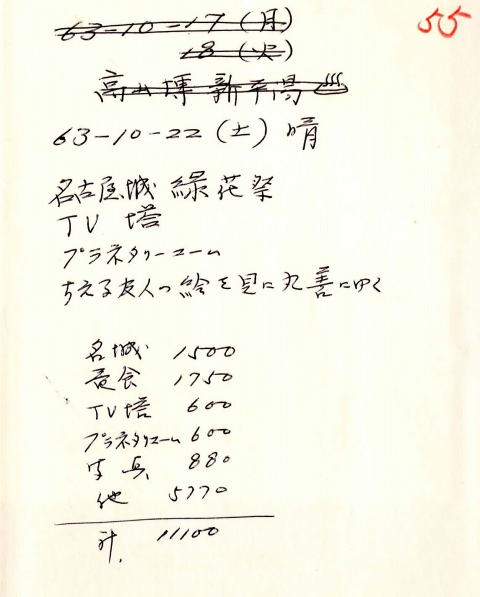 55
63-10-17 (月)
18 (火)
高山博 新平湯
63-10-22 (土) 晴
名古屋城 緑花祭
TV 塔
プラネタリューム
ちえ子友人の絵を見に丸善にゆく
名城 1500
昼食 1750
TV塔 600
プラネタリューム 600
写真 880
他 5770
計. 11100